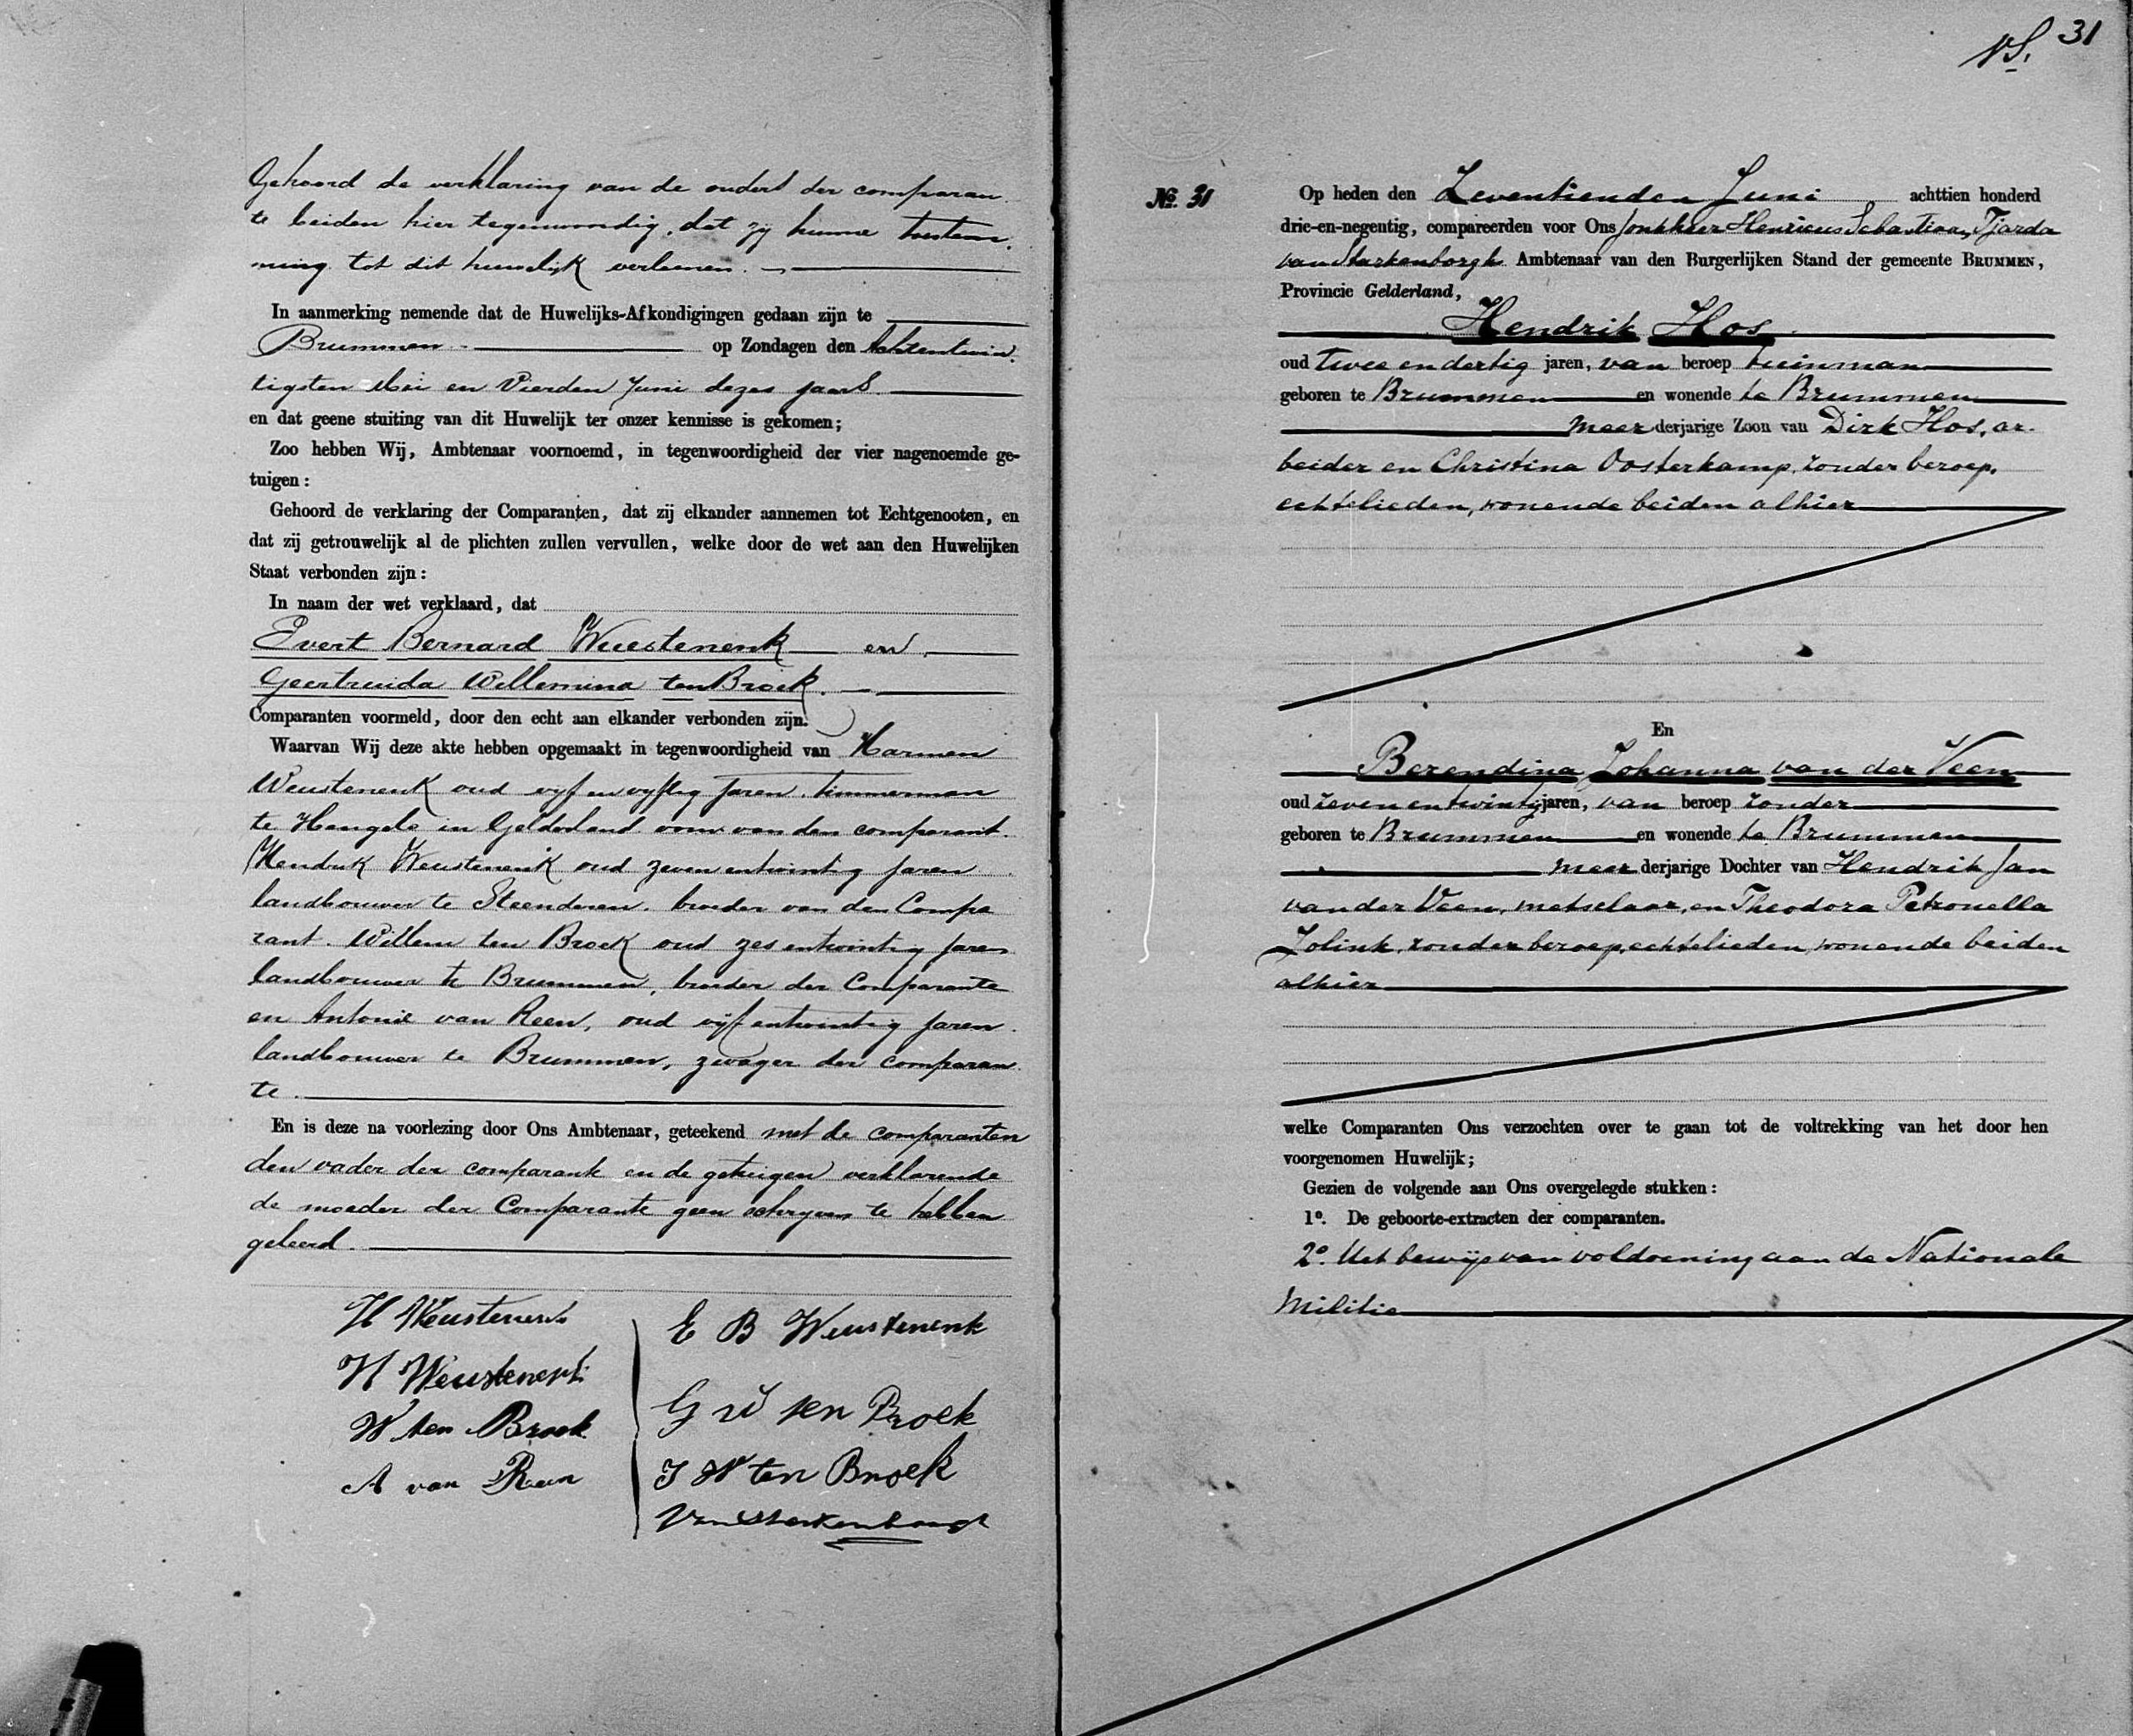 Gehoord de verklaring van de ouders der comparan
te beiden hier tegenwoordig, dat zij hunne toestem
ming tot dit huwelijk verleenen.
In aanmerking nemende dat de Huwelijks-Afkondigingen gedaan zijn te
Brummen op Zondagen den Achtentwin
tigsten Mei en Vierden Juni dezes jaars
en dat geene stuiting van dit Huwelijk ter onzer kennisse is gekomen;
Zoo hebben Wij, Ambtenaar voornoemd, in tegenwoordigheid der vier nagenoemde ge-
tuigen:
Gehoord de verklaring der Comparanten, dat zij elkander aannemen tot Echtgenooten, en
dat zij getrouwelijk al de plichten zullen vervullen, welke door de wet aan den Huwelijken
Staat verbonden zijn:
In naam der wet verklaard, dat
Evert Bernard Weustenenk en
Geertruida Willemina ten Broek.
Comparanten voormeld, door den echt aan elkander verbonden zijn.
Waarvan Wij deze akte hebben opgemaakt in tegenwoordigheid van Harmen
Weustenenk oud vijf en vijftig jaren, timmerman
te Hengelo in Gelderland oom van den comparant.
Hendrik Weustenenk oud zeven entwintig jaren
landbouwer te Steenderen. broeder van den Compa
rant. Willem ten Broek oud zes entwintig jaren
landbouwer te Brummen, broeder der Comparante
en Antonie van Reen, oud vijf entwintig jaren.
landbouwer te Brummen, zwager der comparan
te.
En is deze na voorlezing door Ons Ambtenaar, geteekend met de comparanten
den vader der comparante en de getuigen verklarende
de moeder der Comparante geen schrijven te hebben
geleerd.
H Weustenenk
H Weustenenk
W ten Broek
A van Reen
E B Weustenenk
G W ten Broek
J W ten Broek
Van Starkenborgh
31
No. 31
Op heden den Zeventienden Juni achttien honderd
drie-en-negentig, compareerden voor Ons Jonkheer Henricus Sebastiaan Tjarda
van Starkenborgh Ambtenaar van den Burgerlijken Stand der gemeente BRUMMEN,
Provincie Gelderland,
Hendrik Hos
oud twee en dertig jaren, van beroep tuinman
geboren te Brummen en wonende te Brummen
meerderjarige Zoon van Dirk Hos, ar-
beider en Christina Oosterkamp, zonder beroep,
echtelieden, wonende beiden alhier
En
Berendina Johanna van der Veen
oud zeven en twintig jaren, van beroep zonder
geboren te Brummen en wonende te Brummen
meerderjarige Dochter van Hendrik Jan
van der Veen, metselaar, en Theodora Petronella
Jolink, zonder beroep, echtelieden, wonende beiden
alhier
welke Comparanten Ons verzochten over te gaan tot de voltrekking van het door hen
voorgenomen Huwelijk;
Gezien de volgende aan Ons overgelegde stukken:
1o. De geboorte-extracten der comparanten.
2o. Het bewijs van voldoening aan de Nationale
Militie